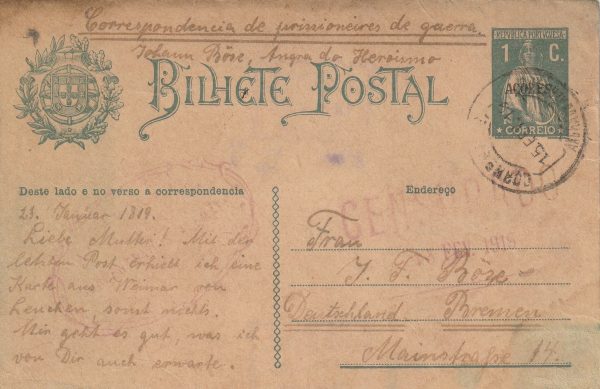 Correspondencia de prisioneiros de guerra.
Johann Böse, Angra do Heroismo
BILHETE POSTAL
REPUBLICA PORTUGUESA
1 C.
AÇORES
CORREIO
Deste lado e no verso a correspondencia
Endereço
23. Januar 1819.
Liebe Mutter! Mit der
letzten Post erhielt ich eine
Karte aus Weimar von
Lenchen, sonst nichts.
Mir geht es gut, was ich
von Dir auch erwarte.
CENSURADO
1918
Frau
J. F. Böse
Deutschland Bremen
Mainstraße 14.